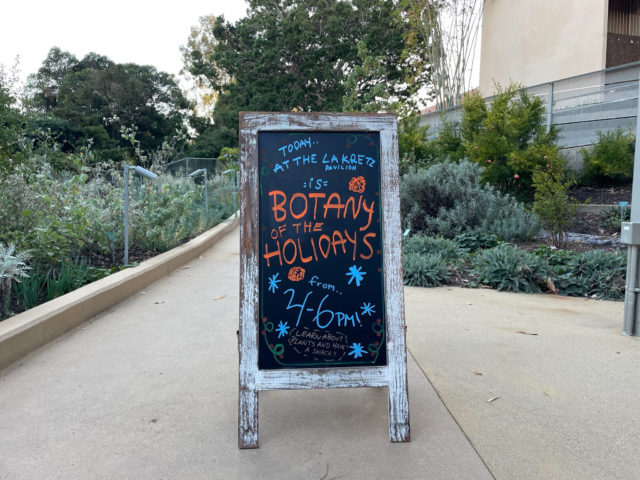 TODAY...
AT THE LA KRETZ
PAVILION
:IS:
BOTANY
OF THE
HOLIDAYS
from...
4-6PM!
LEARN ABOUT
PLANTS AND HAVE
A SNACK!